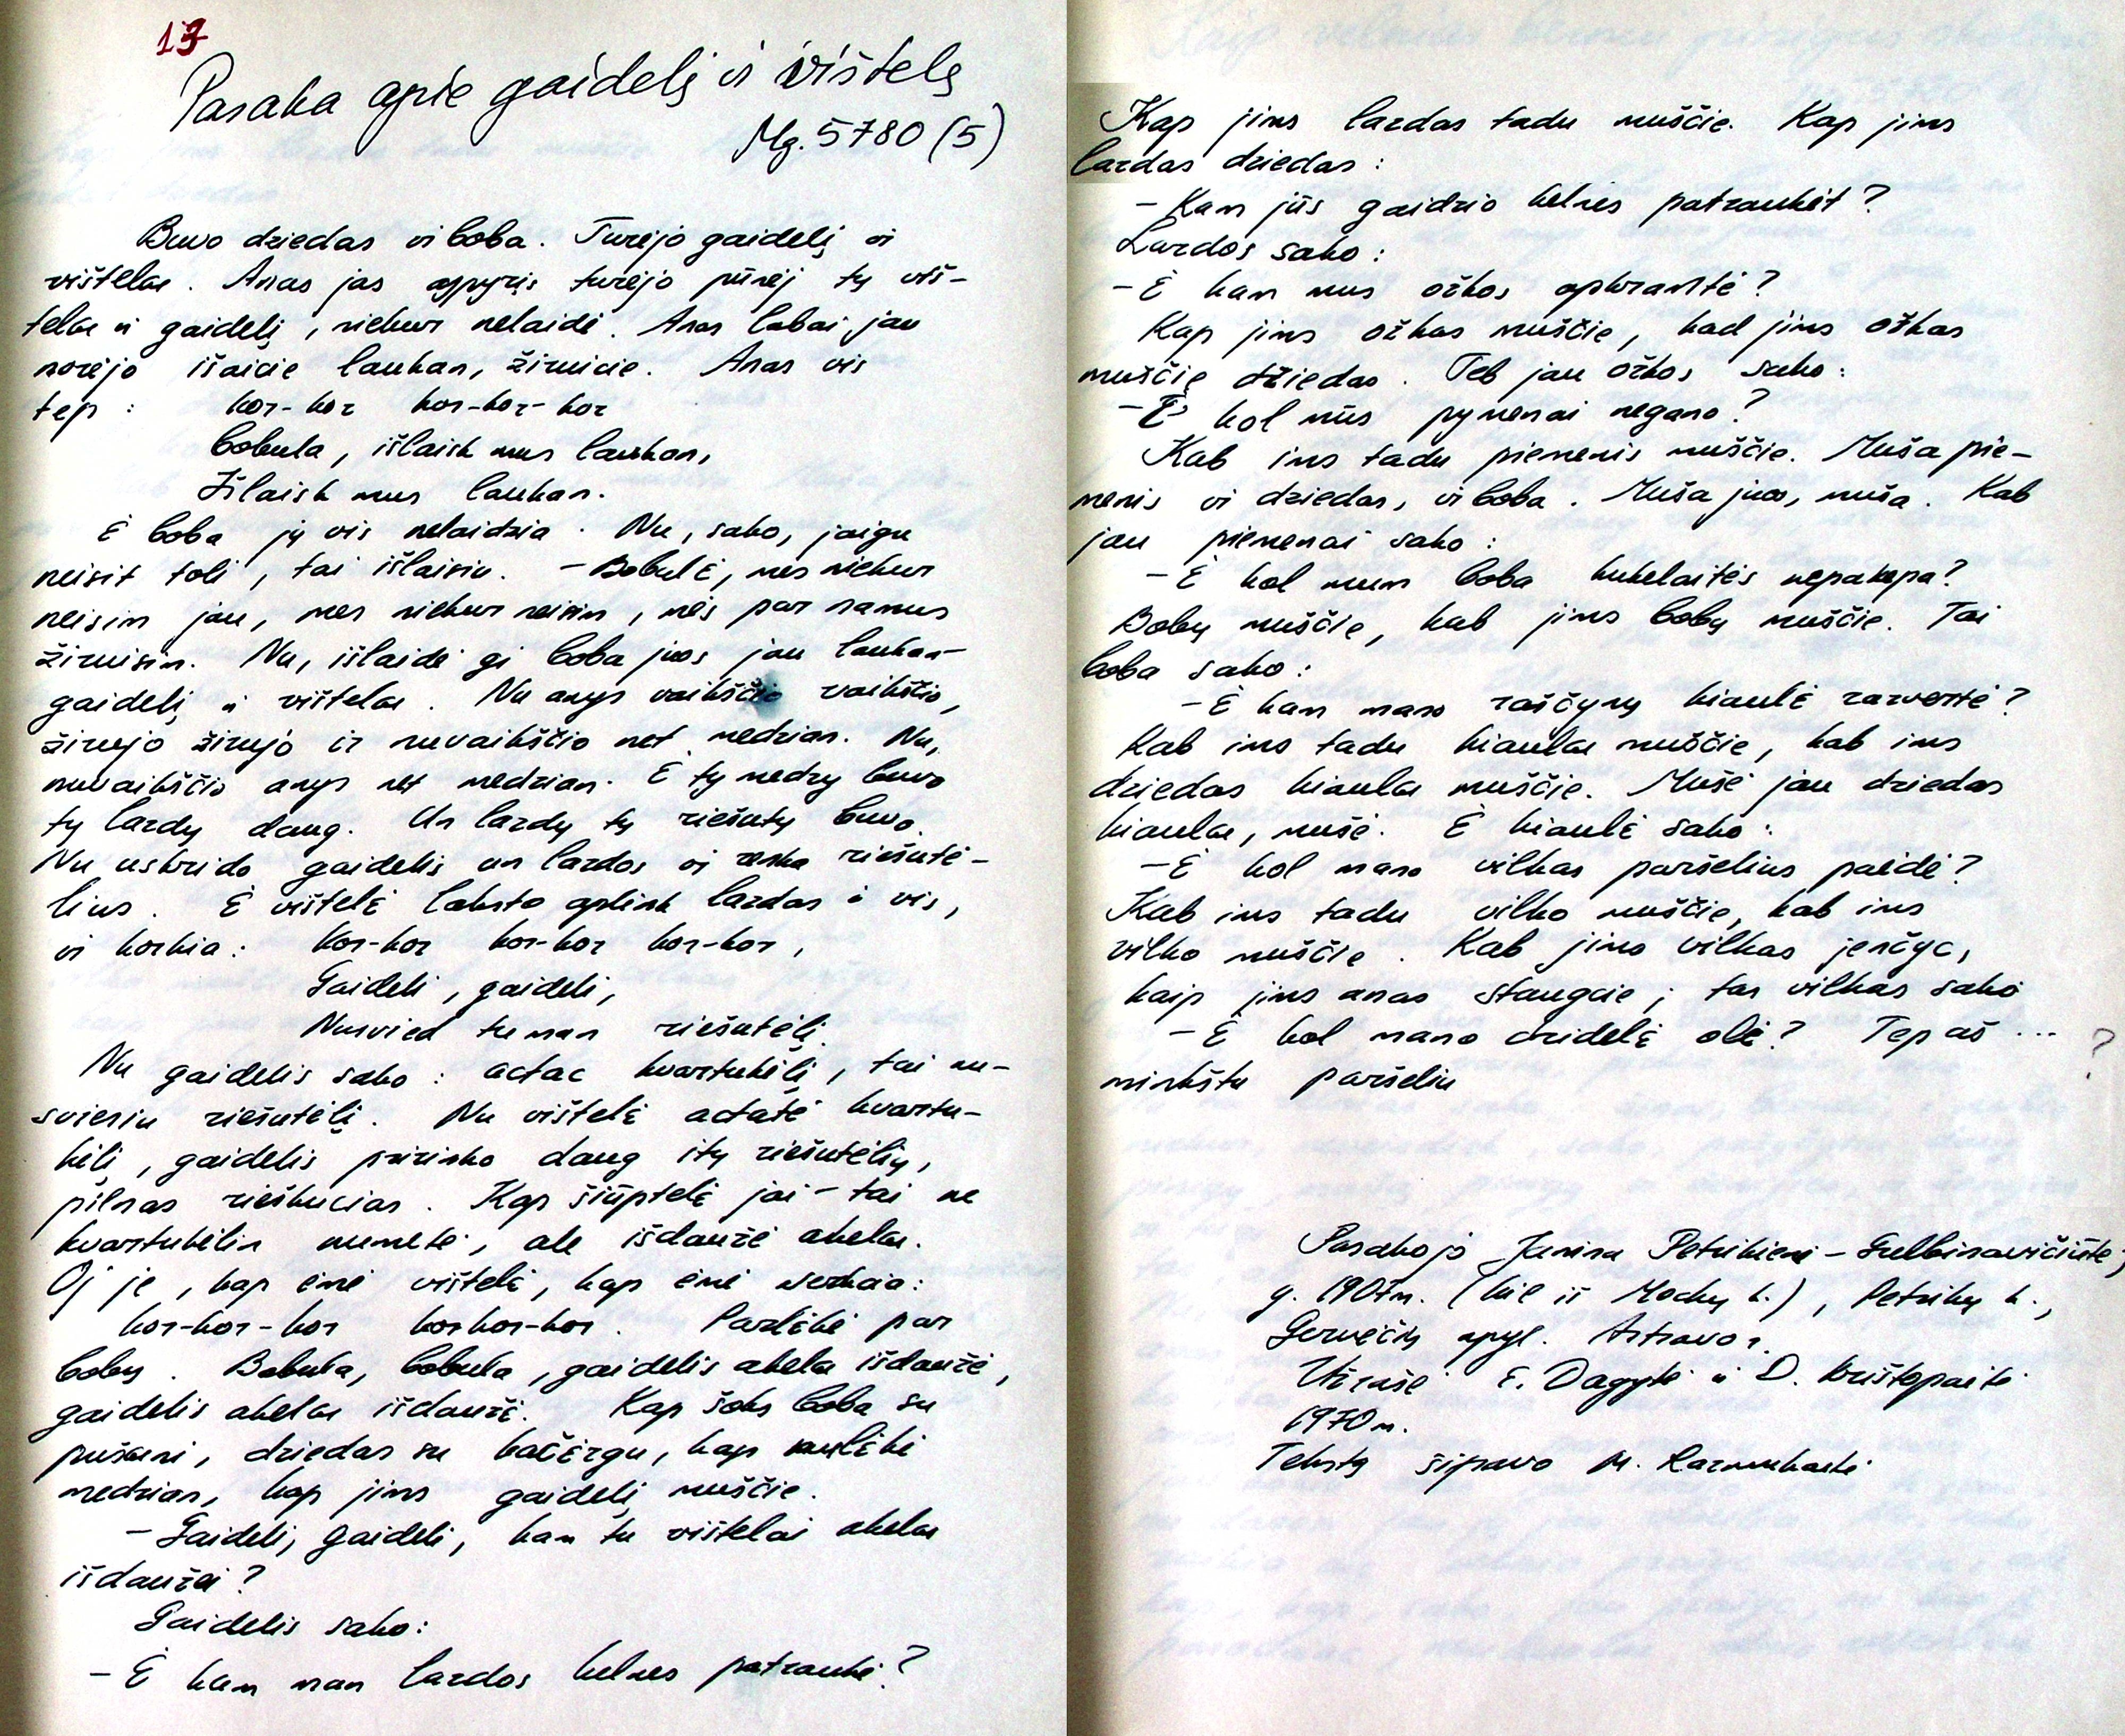 13
Pasaka apie gaidelį ir vištelę
Mg. 5780 (5)
Buvo dziedas ir boba. Turėjo gaidelį ir
vištelae. Anas jas turėjo pūnėj tų viš-
telae ir gaidelį, niekur nelaidė. Anas labai jau
norėjo išaicie laukan, žirnicie. Anas vis
tep: kor-kor kor-kor-kor
bobula, išlaisk mus laukan,
Išlaisk mus laukan.
Ė boba jų vis nelaidzia. Nu, sako, jaigu
neisit toli, tai išlaisiu. – Bobulė, mes niekur
neisim jau, mes niekur neisim, mės par namus
žirnisim. Nu, išlaidė gi boba juos jau laukan –
gaidelį ir vištelae. Nu anys vaikščio vaikščio,
žirnėjo žirnėjo ir nuvaikščio net medzian. Nu,
nuvaikščio anys net medzian. Ė tų medzų buvo
tų lazdų daug. Un lazdų tų riešutų buvo.
Nu uskrido gaidelis un lazdos ir reska riešutė-
lius. Ė vištelė laksto aplink lazdas i vis,
ir korkia: Kor-kor kor-kor kor-kor,
Gaideli, gaideli,
Nusvied tu man riešutėlį.
Nu gaidelis sako: actac kvartukėlį, tai nu-
sviesiu riešutėlį. Nu vištelė actatė kvartu-
kėlį, gaidelis pririsko daug itų riešutėlių,
pilnas rieškucias. Kap šiūptelė jai – tai ne
kvartukėlin numetė, ale išdaužė akelae.
Oj je, kap eina vištelė, kap eina verkia:
kor-kor-kor korkor-kor. Parlėkė par
bobų. Bobula, bobula, gaidelis akelae išdaužė,
gaidelis akelae išdaužė. Kap šoks boba su
dziedas su kačėrgu, kap nulėkė
medzian, kap jims gaidelį muščie.
– Gaideli, gaideli, kam tu vištelai akelae
išdaužei?
Gaidelis sako:
– Ė kam man lazdos kelnes patraukė?
Kap jims lazdas tadu muščie. Kap jims
lazdas dziedas:
– Kam jūs gaidzio kelnes patraukėt?
Lazdos sako:
– Ė kam mus ožkos apkramtė?
Kap jims ožkas muščie, kad jims ožkas
muščie dziedas. Teb jau ožkos sako:
– Ė kol mūs pymenai negano?
Kab ims tadu piemenis muščie. Muša pie-
menis ir dziedas, ir boba. Muša juos, muša. Kab
jau piemenai sako:
– Ė kol mum boba kukelaitės nepakepa?
Bobų muščie, kab jims bobų muščie. Tai
boba sako:
– Ė kam mano raščynų kiaulė razvertė?
Kab ims tadu kiaulae muščie, kab ims
dziedas kiaulae muščie. Mušė jau dziedas
kiaulae, mušė. Ė kiaulė sako:
– Ė kol mano vilkas paršelius paėdė?
Kab ims tadu vilko muščie, kab ims
vilko muščie. Kab jims vilkas jenčyc,
kaip jims anas staugcie; tas vilkas sako
– Ė kol mano dzidelė olė? Tep aš ... ?
minkštu paršeliu
Pasakojo Janina Petrikienė – Gulbinavičiūtė,
g. 1907 m. (kil iš Mockų k.), Petrikų k.,
Gervėčių apyl. Astravo r.
Užrašė E. Dagytė ir D. Krištopaitė
1970 m.
Tekstą šifravo M. Razmukaitė